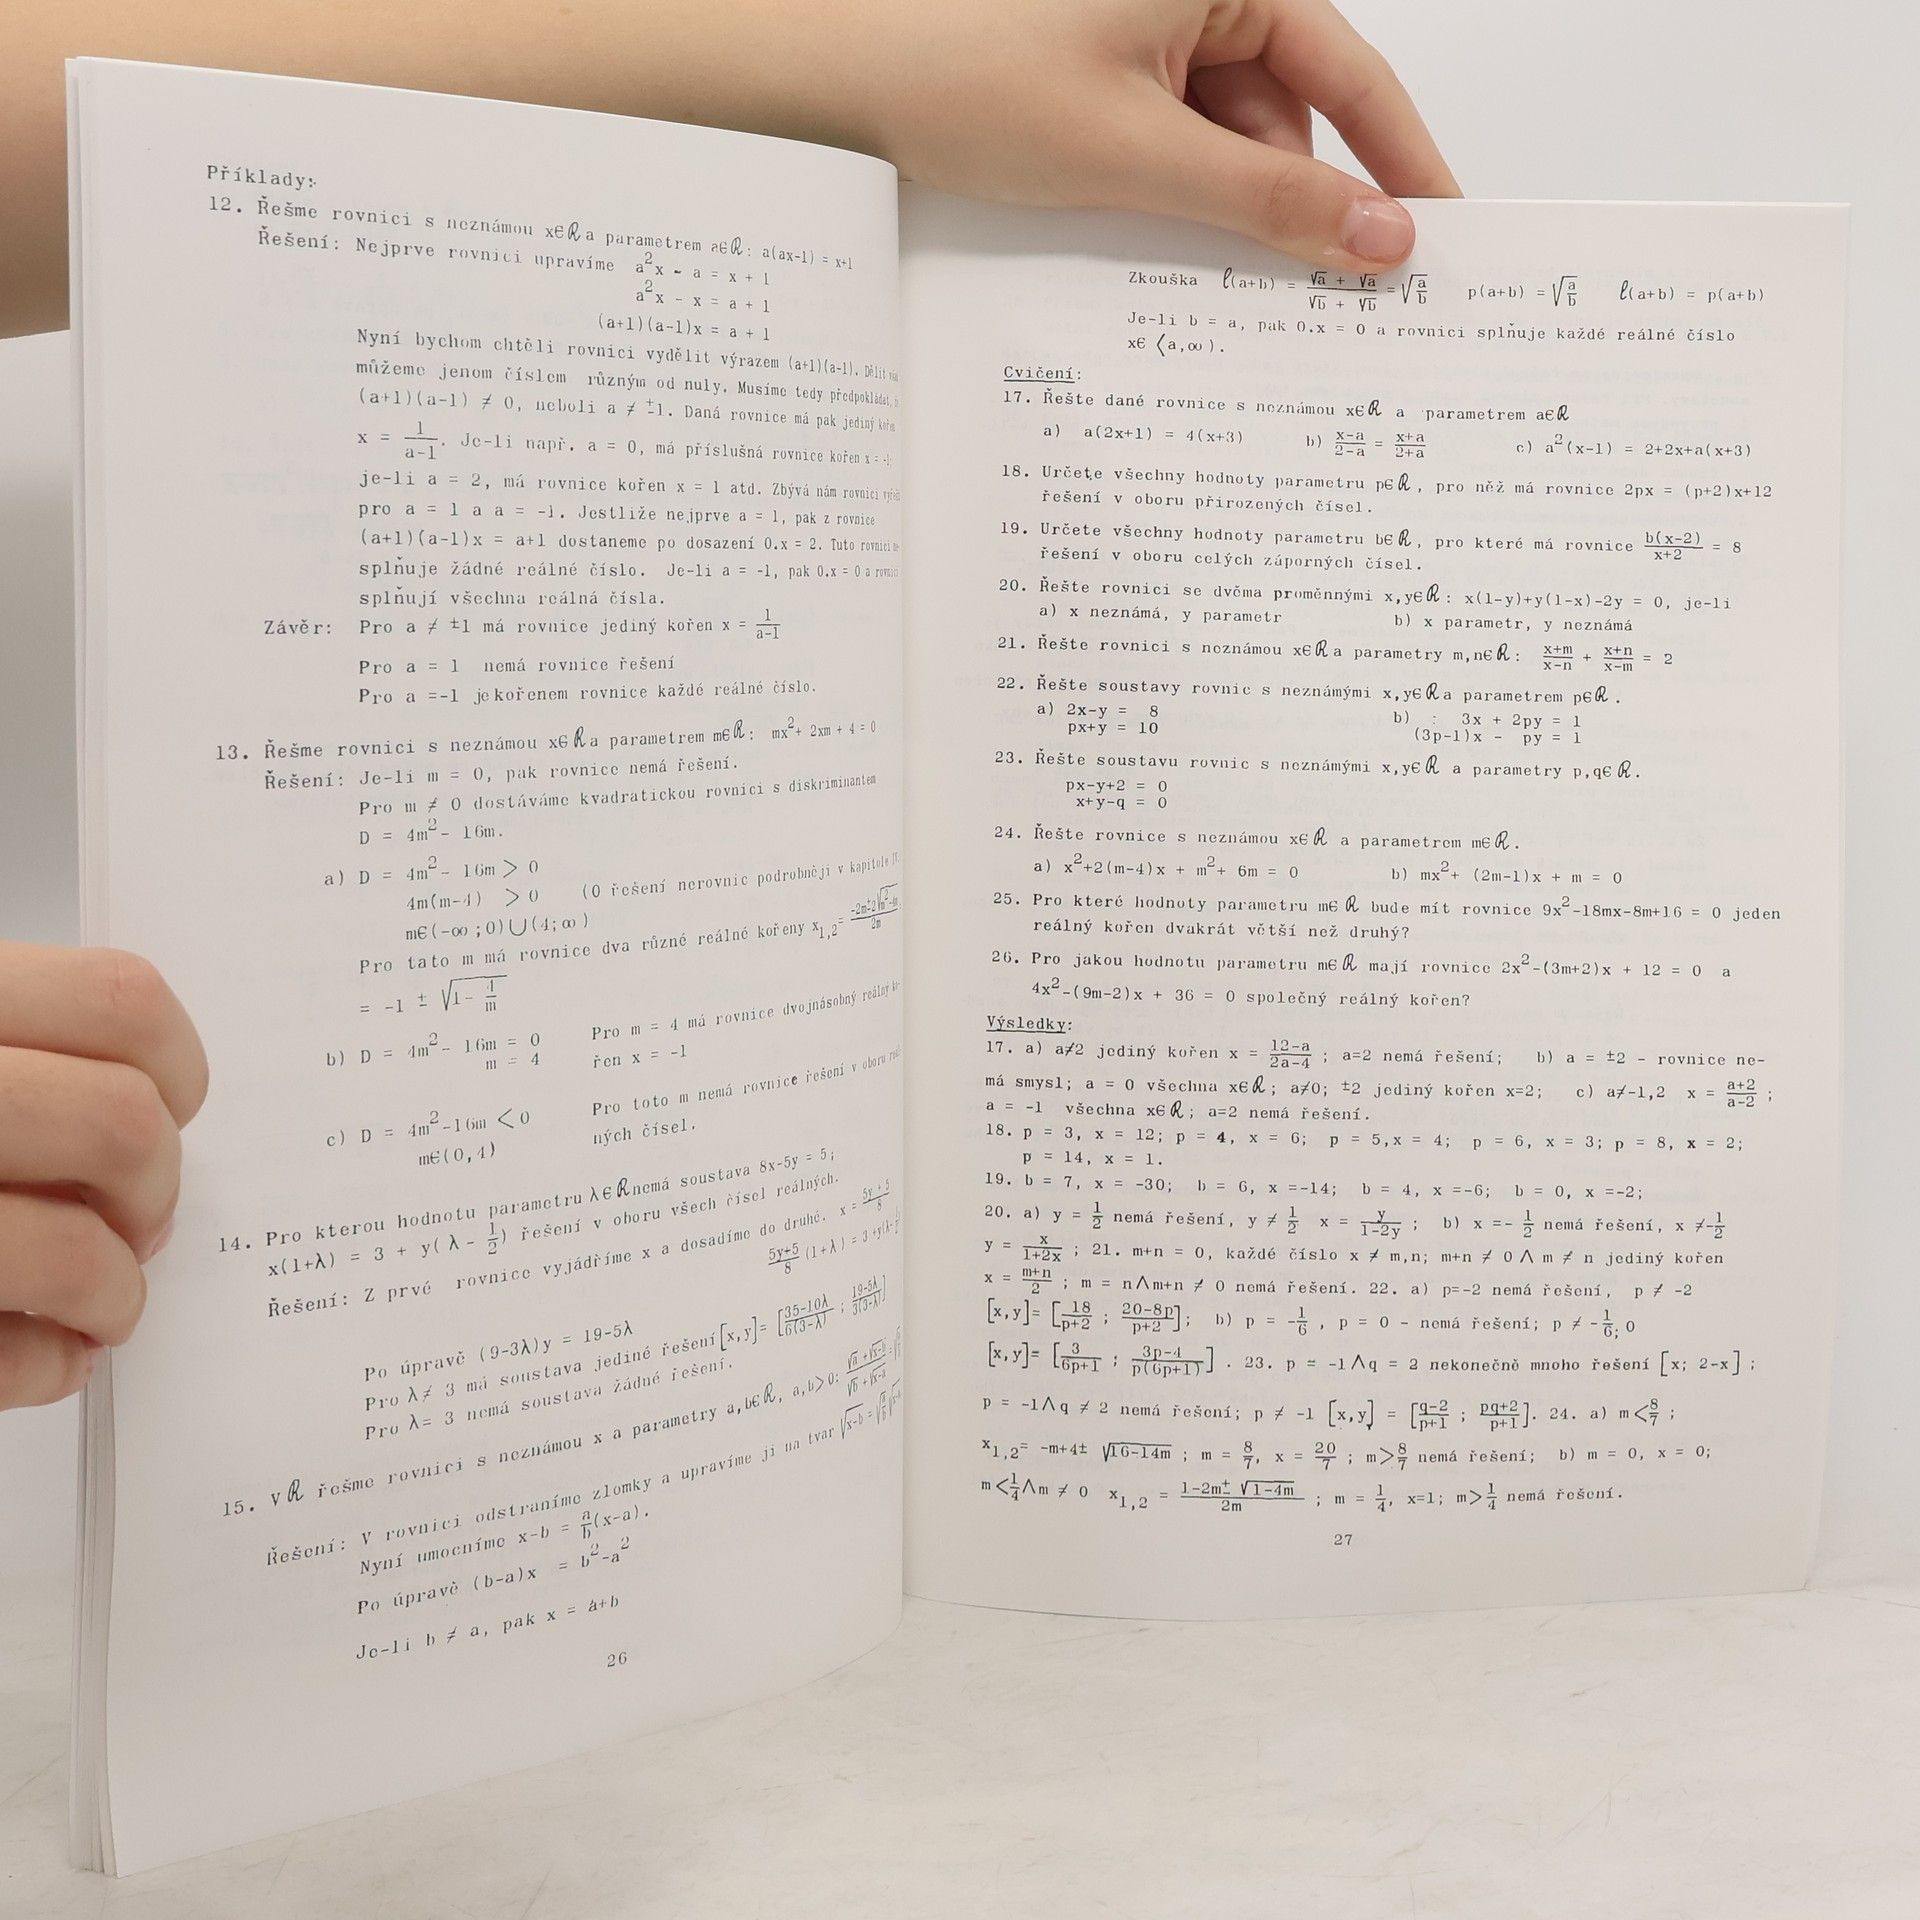 Příklady:
12. Řešme rovnici s neznámou x∈ℛ a parametrem a∈ℛ: a(ax-1) = x+1
Řešení: Nejprve rovnici upravíme a²x - a = x + 1
a²x - x = a + 1
(a+1)(a-1)x = a + 1
Nyní bychom chtěli rovnici vydělit výrazem (a+1)(a-1). Dělit
můžeme jenom číslem různým od nuly. Musíme tedy předpokládat,
(a+1)(a-1) ≠ 0, neboli a ≠ ±1. Daná rovnice má pak jediný kořen
x = 1/(a-1). Je-li např. a = 0, má příslušná rovnice kořen x = -1;
je-li a = 2, má rovnice kořen x = 1 atd. Zbývá nám rovnici
pro a = 1 a a = -1. Jestliže nejprve a = 1, pak z rovnice
(a+1)(a-1)x = a+1 dostaneme po dosazení 0.x = 2. Tuto rovnici
splňuje žádné reálné číslo. Je-li a = -1, pak 0.x = 0 a
splňují všechna reálná čísla.
Závěr: Pro a ≠ ±1 má rovnice jediný kořen x = 1/(a-1)
Pro a = 1 nemá rovnice řešení
Pro a =-1 je kořenem rovnice každé reálné číslo.
13. Řešme rovnici s neznámou x∈ℛ a parametrem m∈ℛ: mx²+ 2xm + 4 = 0
Řešení: Je-li m = 0, pak rovnice nemá řešení.
Pro m ≠ 0 dostáváme kvadratickou rovnici s diskriminantem
D = 4m²- 16m.
a) D = 4m²- 16m > 0
4m(m-4) > 0 (O řešení nerovnic podrobněji v kapitole IV.
m∈(-∞;0)∪(4;∞)
Pro tato m má rovnice dva různé reálné kořeny x₁,₂=
= -1 ± √(1- 4/m)
b) D = 4m²- 16m = 0 Pro m = 4 má rovnice dvojnásobný reálný ko-
m = 4 řen x = -1
c) D = 4m²-16m < 0 Pro toto m nemá rovnice řešení v oboru
m∈(0,4) ných čísel.
14. Pro kterou hodnotu parametru λ∈ℛ nemá soustava 8x-5y = 5;
x(1+λ) = 3 + y(λ - 1/2) řešení v oboru všech čísel reálných.
Řešení: Z prvé rovnice vyjádříme x a dosadíme do druhé. x = (5y + 5)/8
(5y+5)/8 (1+λ) = 3
Po úpravě (9-3λ)y = 19-5λ
Pro λ≠ 3 má soustava jediné řešení [x,y]= [(35-10λ)/(6(3-λ)) ; (19-5λ)/(3(3-λ))]
Pro λ= 3 nemá soustava žádné řešení.
15. V ℛ řešme rovnici s neznámou x a parametry a,b∈ℛ, a,b>0:
Řešení: V rovnici odstraníme zlomky a upravíme ji na tvar
Nyní umocníme x-b = a/b(x-a).
Po úpravě (b-a)x = b²-a²
Je-li b ≠ a, pak x = a+b
26
Zkouška ℓ(a+b) = (√a + √a)/(√b + √b) = √(a/b) p(a+b) = √(a/b) ℓ(a+b) = p(a+b)
Je-li b = a, pak 0.x = 0 a rovnici splňuje každé reálné číslo
x∈ ⟨a,∞).
Cvičení:
17. Řešte dané rovnice s neznámou x∈ℛ a parametrem a∈ℛ
a) a(2x+1) = 4(x+3) b) (x-a)/(2-a) = (x+a)/(2+a) c) a²(x-1) = 2+2x+a(x+3)
18. Určete všechny hodnoty parametru p∈ℛ, pro něž má rovnice 2px = (p+2)x+12
řešení v oboru přirozených čísel.
19. Určete všechny hodnoty parametru b∈ℛ, pro které má rovnice b(x-2)/(x+2) = 8
řešení v oboru celých záporných čísel.
20. Řešte rovnici se dvěma proměnnými x,y∈ℛ: x(1-y)+y(1-x)-2y = 0, je-li
a) x neznámá, y parametr b) x parametr, y neznámá
21. Řešte rovnici s neznámou x∈ℛ a parametry m,n∈ℛ: (x+m)/(x-n) + (x+n)/(x-m) = 2
22. Řešte soustavy rovnic s neznámými x,y∈ℛ a parametrem p∈ℛ.
a) 2x-y = 8 b) : 3x + 2py = 1
px+y = 10 (3p-1)x - py = 1
23. Řešte soustavu rovnic s neznámými x,y∈ℛ a parametry p,q∈ℛ.
px-y+2 = 0
x+y-q = 0
24. Řešte rovnice s neznámou x∈ℛ a parametrem m∈ℛ.
a) x²+2(m-4)x + m²+ 6m = 0 b) mx²+ (2m-1)x + m = 0
25. Pro které hodnoty parametru m∈ℛ bude mít rovnice 9x²-18mx-8m+16 = 0 jeden
reálný kořen dvakrát větší než druhý?
26. Pro jakou hodnotu parametru m∈ℛ mají rovnice 2x²-(3m+2)x + 12 = 0 a
4x²-(9m-2)x + 36 = 0 společný reálný kořen?
Výsledky:
17. a) a≠2 jediný kořen x = (12-a)/(2a-4) ; a=2 nemá řešení; b) a = ±2 - rovnice ne-
má smysl; a = 0 všechna x∈ℛ; a≠0; ±2 jediný kořen x=2; c) a≠-1,2 x = (a+2)/(a-2) ;
a = -1 všechna x∈ℛ; a=2 nemá řešení.
18. p = 3, x = 12; p = 4, x = 6; p = 5,x = 4; p = 6, x = 3; p = 8, x = 2;
p = 14, x = 1.
19. b = 7, x = -30; b = 6, x =-14; b = 4, x =-6; b = 0, x =-2;
20. a) y = 1/2 nemá řešení, y ≠ 1/2 x = y/(1-2y) ; b) x =- 1/2 nemá řešení, x ≠-1/2
y = x/(1+2x) ; 21. m+n = 0, každé číslo x ≠ m,n; m+n ≠ 0 ∧ m ≠ n jediný kořen
x = (m+n)/2 ; m = n∧m+n ≠ 0 nemá řešení. 22. a) p=-2 nemá řešení, p ≠ -2
[x,y]= [18/(p+2) ; (20-8p)/(p+2)]; b) p = -1/6 , p = 0 - nemá řešení; p ≠ -1/6; 0
[x,y]= [3/(6p+1) ; (3p-4)/(p(6p+1))] . 23. p = -1∧q = 2 nekonečně mnoho řešení [x; 2-x] ;
p = -1∧q ≠ 2 nemá řešení; p ≠ -1 [x,y] = [(q-2)/(p+1) ; (pq+2)/(p+1)]. 24. a) m<8/7 ;
x₁,₂= -m+4± √(16-14m) ; m = 8/7, x = 20/7 ; m>8/7 nemá řešení; b) m = 0, x = 0;
m<1/4∧m ≠ 0 x₁,₂ = (1-2m± √(1-4m))/2m ; m = 1/4, x=1; m>1/4 nemá řešení.
27